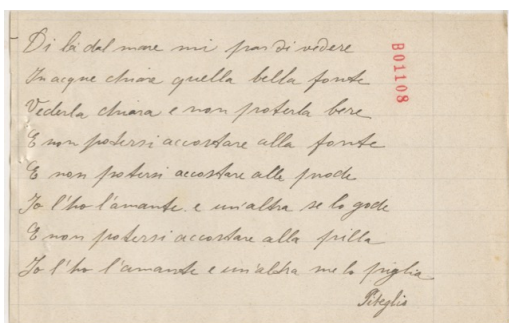 Di là dal mare mi par di vedere
B01108
In acque chiara quella bella fonte
Vederla chiara e non poterla bere
E non potersi accostare alla fonte
E non potersi accostare alle prode
Io l'ho l'amante e un'altra se lo gode
E non potersi accostare alla pilla
Io l'ho l'amante e un'altra me lo piglia
Piteglio